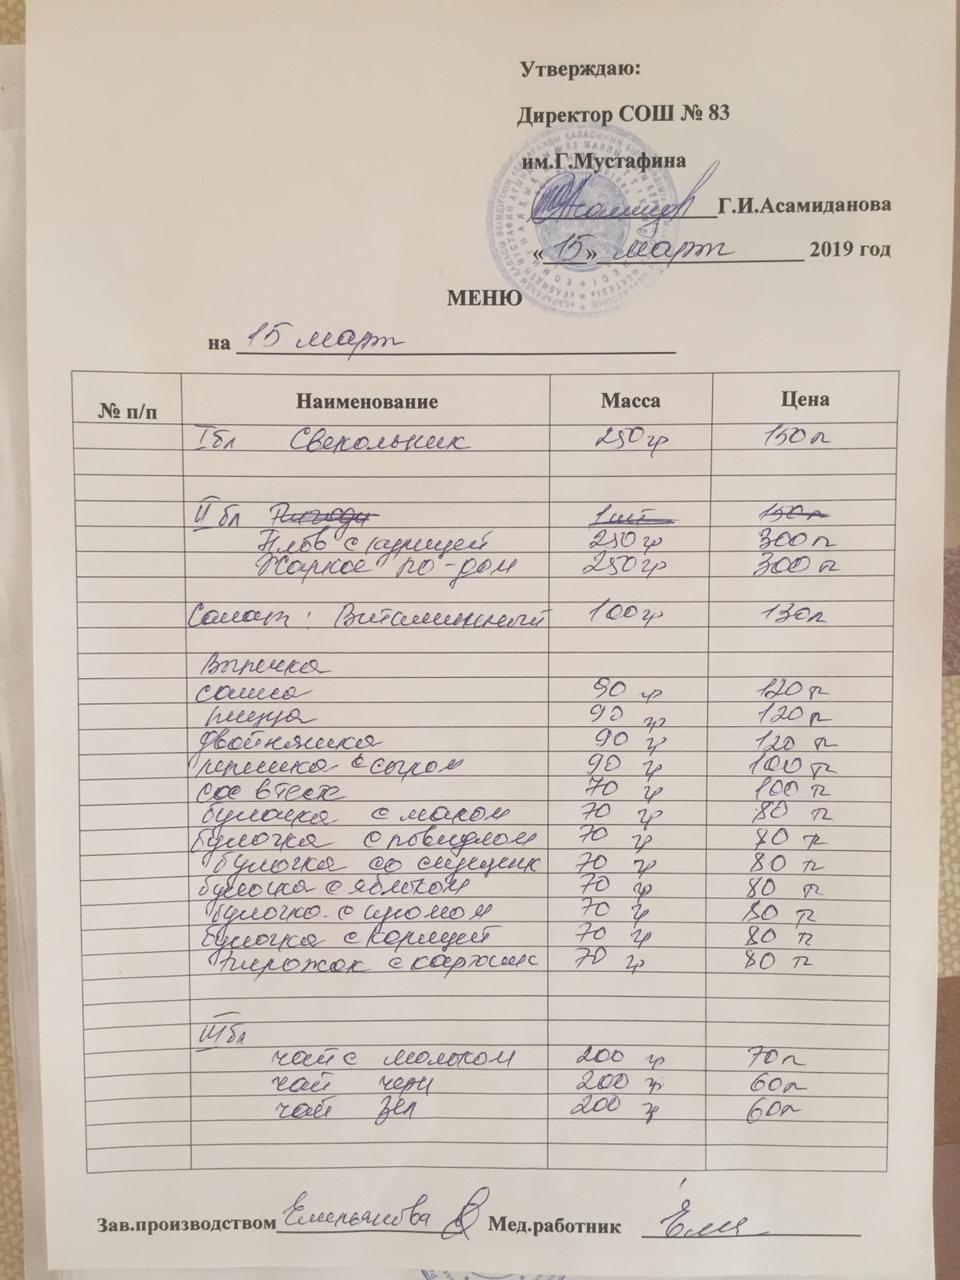 Утверждаю:
Директор СОШ № 83
им.Г.Мустафина
Г.И.Асамиданова
«15» март 2019 год
МЕНЮ
на 15 март
№ п/п Наименование Масса Цена
I бл Свекольник 250 гр 150 т
II бл 1 шт 150 т
Плов с курицей 250 гр 300 т
Жаркое по-дом 250 гр 300 т
Салат: Витаминный 100 гр 130 т
Выпечка
самса 90 гр 120 т
пицца 90 гр 120 т
двойняшка 90 гр 120 т
лепешка с сыром 90 гр 100 т
сос в тесте 70 гр 100 т
булочка с маком 70 гр 80 т
булочка с повидлом 70 гр 80 т
булочка со сгущенк 70 гр 80 т
булочка с яблоком 70 гр 80 т
булочка с изюмом 70 гр 80 т
булочка с корицей 70 гр 80 т
пирожок с картошк 70 гр 80 т
III бл
чай с молоком 200 гр 70 т
чай черн 200 гр 60 т
чай зел 200 гр 60 т
Зав.производством Емельянова Мед.работник